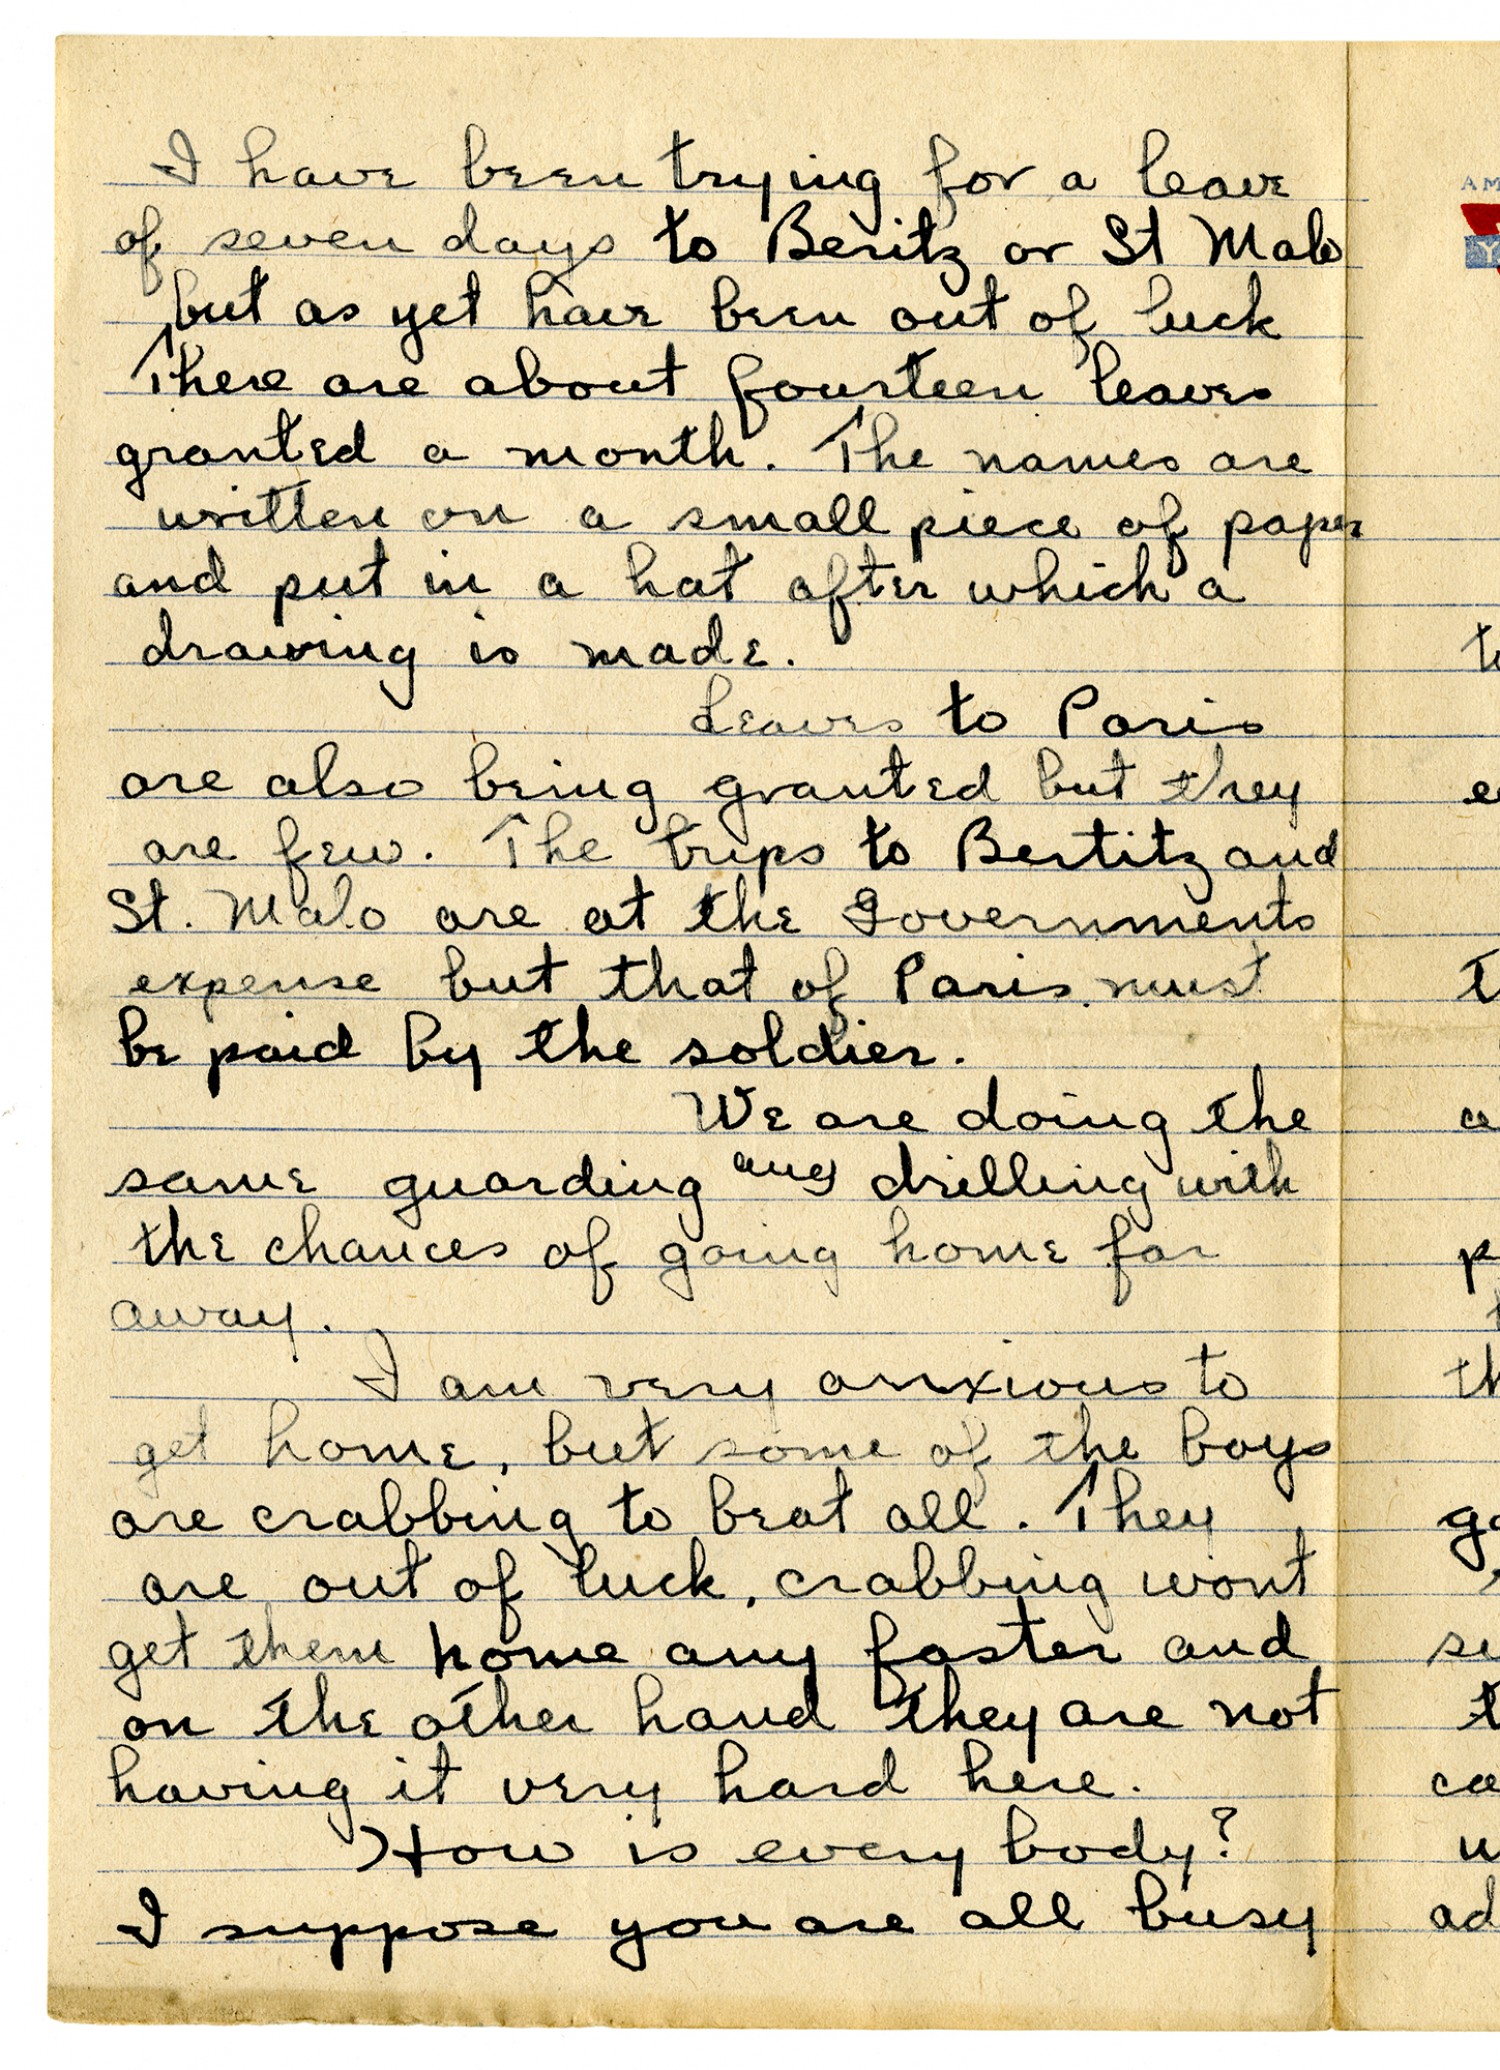 I have been trying for a leave
of seven days to Beritz or St Malo
but as yet have been out of luck
There are about fourteen leaves
granted a month. The names are
written on a small piece of paper
and put in a hat after which a
drawing is made.
Leaves to Paris
are also being granted but they
are few. The trips to Bertitz and
St. Malo are at the Governments
expense but that of Paris must
be paid by the soldier.
We are doing the
same guarding and drilling with
the chances of going home far
away.
I am very anxious to
get home, but some of the boys
are crabbing to beat all. They
are out of luck, crabbing wont
get them home any faster and
on the other hand they are not
having it very hard here.
How is every body?
I suppose you are all busy
AM
Y